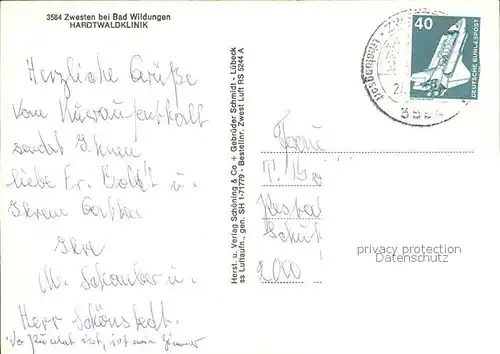 3584 Zwesten bei Bad Wildungen
HARDTWALDKLINIK
Herzliche Grüße
vom Kuraufenthalt
sendet Ihnen
liebe Fr. u.
Ihrem Gatten
Ihre
M. Schomber u.
Herr Schönstedt.
Wo Punkt ist, ist mein Zimmer
Herst. u. Verlag Schöning & Co + Gebrüder Schmidt - Lübeck
ss Luftaufn., gen. SH 1-71779 - Bestellnr. Zwest Luft RS 5244 A
40
DEUTSCHE BUNDESPOST
Frau
2000
privacy protection
Datenschutz